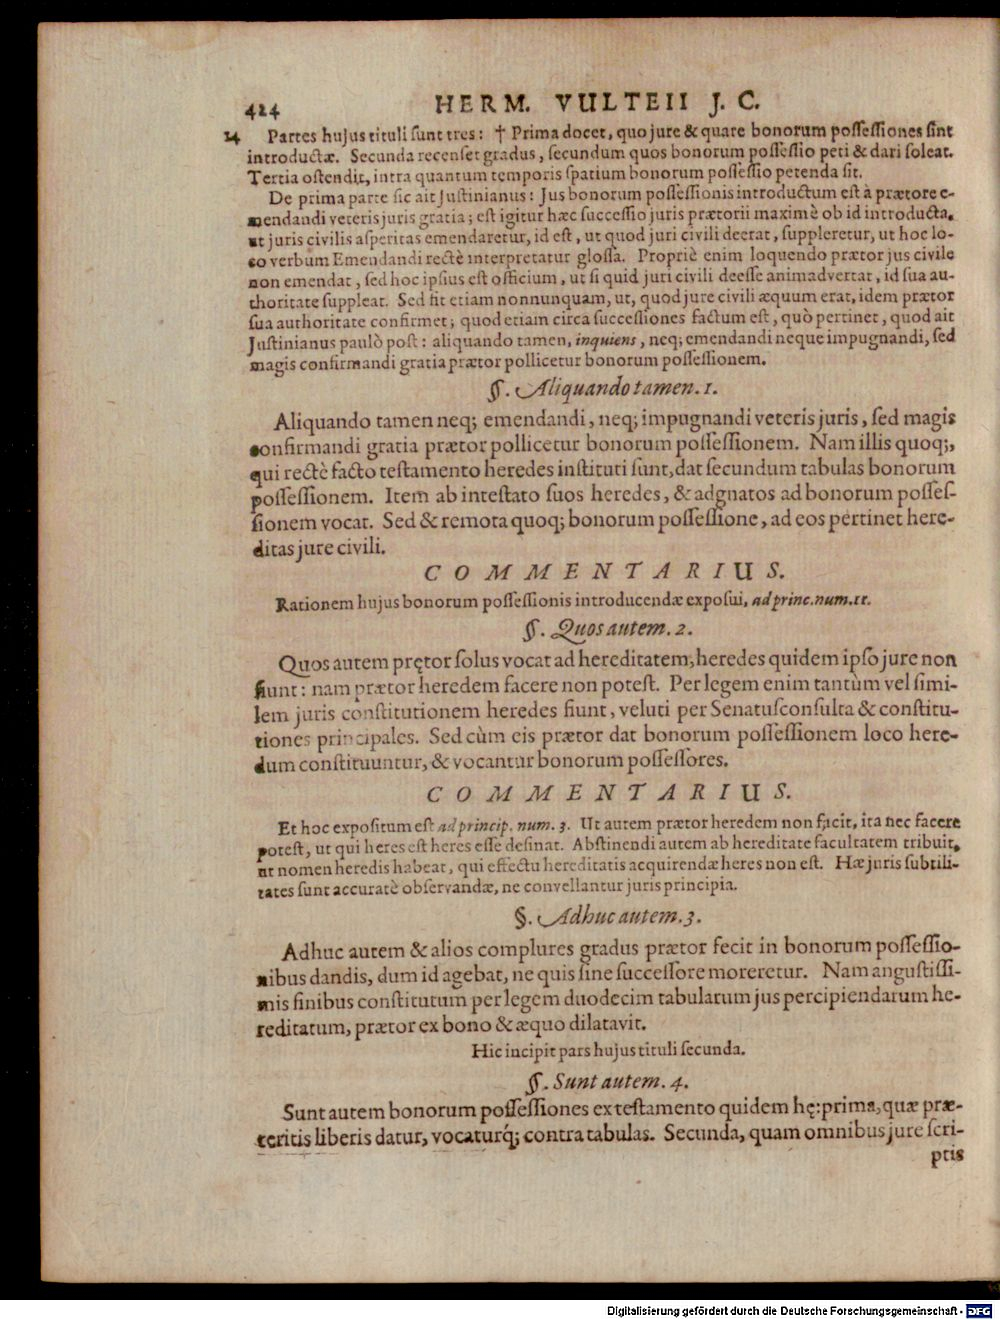 424 HERM. VULTEII J. C.
14 Partes hujus tituli ſunt tres: † Prima docet, quo jure & quare bonorum poſſeſſiones ſint
introductæ. Secunda recenſet gradus, ſecundum quos bonorum poſſeſſio peti & dari ſoleat.
Tertia oſtendit, intra quantum temporis ſpatium bonorum poſſeſſio petenda ſit.
De prima parte ſic ait Juſtinianus: Jus bonorum poſſeſſionis introductum eſt à prætore e-
mendandi veteris juris gratia; eſt igitur hæc ſucceſſio juris prætorii maximè ob id introducta,
ut juris civilis aſperitas emendaretur, id eſt, ut quod juri civili deerat, ſuppleretur, ut hoc lo-
co verbum Emendandi rectè interpretatur gloſſa. Propriè enim loquendo prætor jus civile
non emendat, ſed hoc ipſius eſt officium, ut ſi quid juri civili deeſſe animadvertat, id ſua au-
thoritate ſuppleat. Sed fit etiam nonnunquam, ut, quod jure civili æquum erat, idem prætor
ſua authoritate confirmet; quod etiam circa ſucceſſiones factum eſt, quò pertinet, quod ait
Juſtinianus paulò poſt: aliquando tamen, inquiens, neq; emendandi neque impugnandi, ſed
magis confirmandi gratia prætor pollicetur bonorum poſſeſſionem.
§. Aliquando tamen. 1.
Aliquando tamen neq; emendandi, neq; impugnandi veteris juris, ſed magis
confirmandi gratia prætor pollicetur bonorum poſſeſſionem. Nam illis quoq;,
qui rectè facto teſtamento heredes inſtituti ſunt, dat ſecundum tabulas bonorum
poſſeſſionem. Item ab inteſtato ſuos heredes, & adgnatos ad bonorum poſſeſ-
ſionem vocat. Sed & remota quoq; bonorum poſſeſſione, ad eos pertinet here-
ditas jure civili.
COMMENTARIUS.
Rationem hujus bonorum poſſeſſionis introducendæ expoſui, ad princ. num. 11.
§. Quos autem. 2.
Quos autem prętor ſolus vocat ad hereditatem, heredes quidem ipſo jure non
fiunt: nam prætor heredem facere non poteſt. Per legem enim tantùm vel ſimi-
lem juris conſtitutionem heredes fiunt, veluti per Senatuſconſulta & conſtitu-
tiones principales. Sed cùm eis prætor dat bonorum poſſeſſionem loco here-
dum conſtituuntur, & vocantur bonorum poſſeſſores.
COMMENTARIUS.
Et hoc expoſitum eſt ad princip. num. 3. Ut autem prætor heredem non facit, ita nec facere
poteſt, ut qui heres eſt heres eſſe deſinat. Abſtinendi autem ab hereditate facultatem tribuit,
ut nomen heredis habeat, qui effectu hereditatis acquirendæ heres non eſt. Hæ juris ſubtili-
tates ſunt accuratè obſervandæ, ne convellantur juris principia.
§. Adhuc autem. 3.
Adhuc autem & alios complures gradus prætor fecit in bonorum poſſeſſio-
nibus dandis, dum id agebat, ne quis ſine ſucceſſore moreretur. Nam anguſtiſſi-
mis finibus conſtitutum per legem duodecim tabularum jus percipiendarum he-
reditatum, prætor ex bono & æquo dilatavit.
Hic incipit pars hujus tituli ſecunda.
§. Sunt autem. 4.
Sunt autem bonorum poſſeſſiones ex teſtamento quidem hę: prima, quæ præ-
teritis liberis datur, vocaturq́; contra tabulas. Secunda, quam omnibus jure ſcri-
ptis
Digitalisierung gefördert durch die Deutsche Forschungsgemeinschaft - DFG